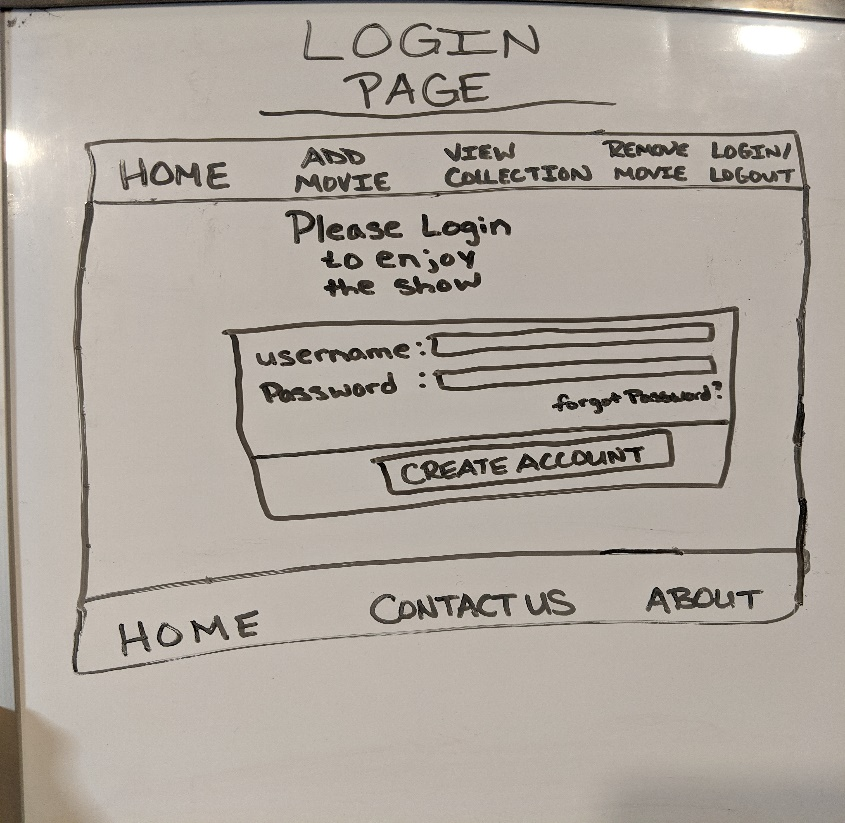 LOGIN
PAGE
HOME ADD MOVIE VIEW COLLECTION REMOVE MOVIE LOGIN/ LOGOUT
Please Login
to enjoy
the show
username:
Password :
forgot Password?
CREATE ACCOUNT
HOME CONTACT US ABOUT